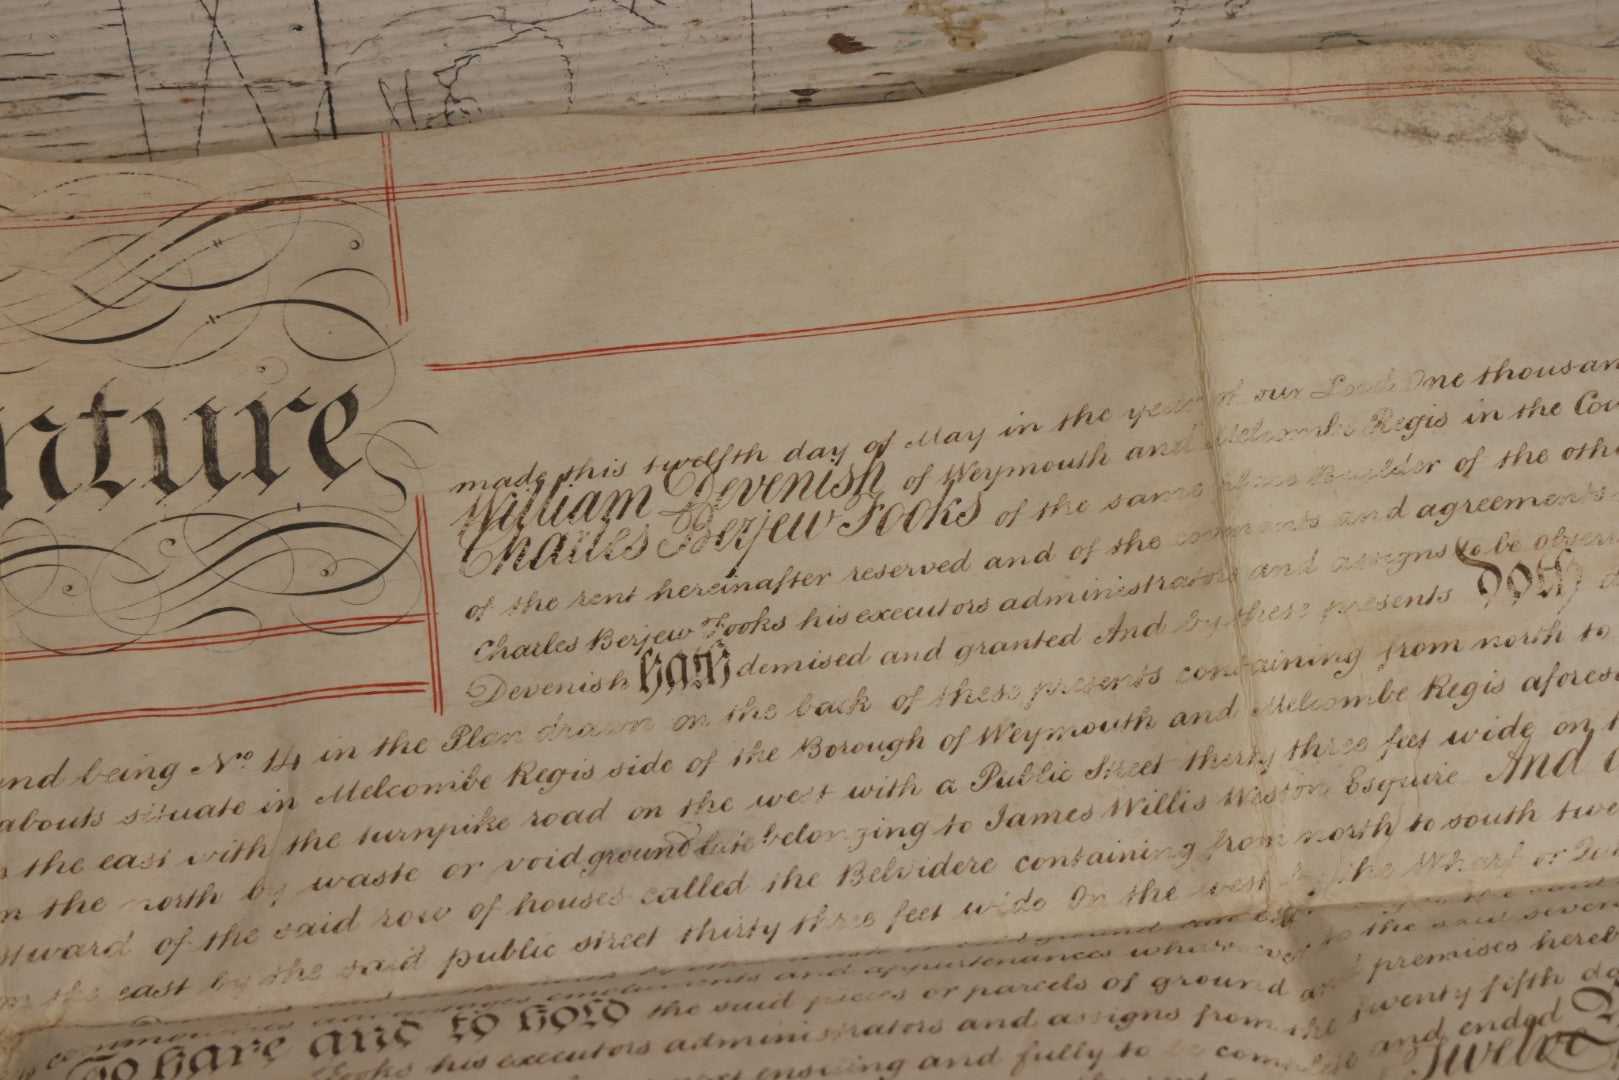 nture
made this twelfth day of May in the year of our Lord One thousan
William Devenish of Weymouth and Melcombe Regis in the Cou
Charles Berjew Fooks of the same place Builder of the othe
of the rent hereinafter reserved and of the covenants and agreements
Charles Berjew Fooks his executors administrators and assigns to be observ
Devenish hath demised and granted And by these presents Doth
Plan drawn on the back of these presents containing from north to
and being No. 14 in the
abouts situate in Melcombe Regis side of the Borough of Weymouth and Melcombe Regis aforesa
the east with the turnpike road on the west with a Public Street thirty three feet wide on t
n the north by waste or void ground late belonging to James Willis Weston Esquire And
stward of the said row of houses called the Belvidere containing from north to south twe
on the east by the said public street thirty three feet wide On the west by the Wharf or Qu
to the said
commodities advantages emoluments and appurtenances whatsoever to the said seven
To have and to hold the said pieces or parcels of ground and premises hereb
Fooks his executors administrators and assigns from the twenty fifth da
ensuing and fully to be complete and ended
Twelve